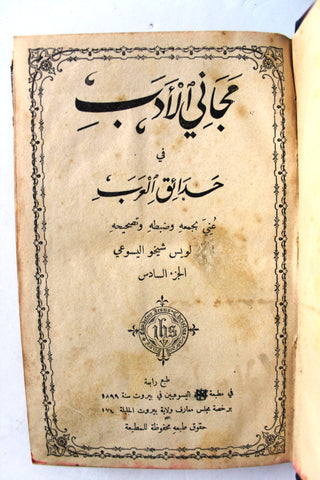 مجاني الأدب
في
حدائق العرب
عُني بجمعهِ وضبطهِ وتصحيحهِ
لويس شيخو اليسوعي
الجزء السادس
ihs
طبع رابعة
في مطبعة اليسوعيين في بيروت سنة ١٨٩٩
برخصة مجلس معارف ولاية بيروت الجليلة ١٧٤
حقوق طبعهِ محفوظة للمطبعة